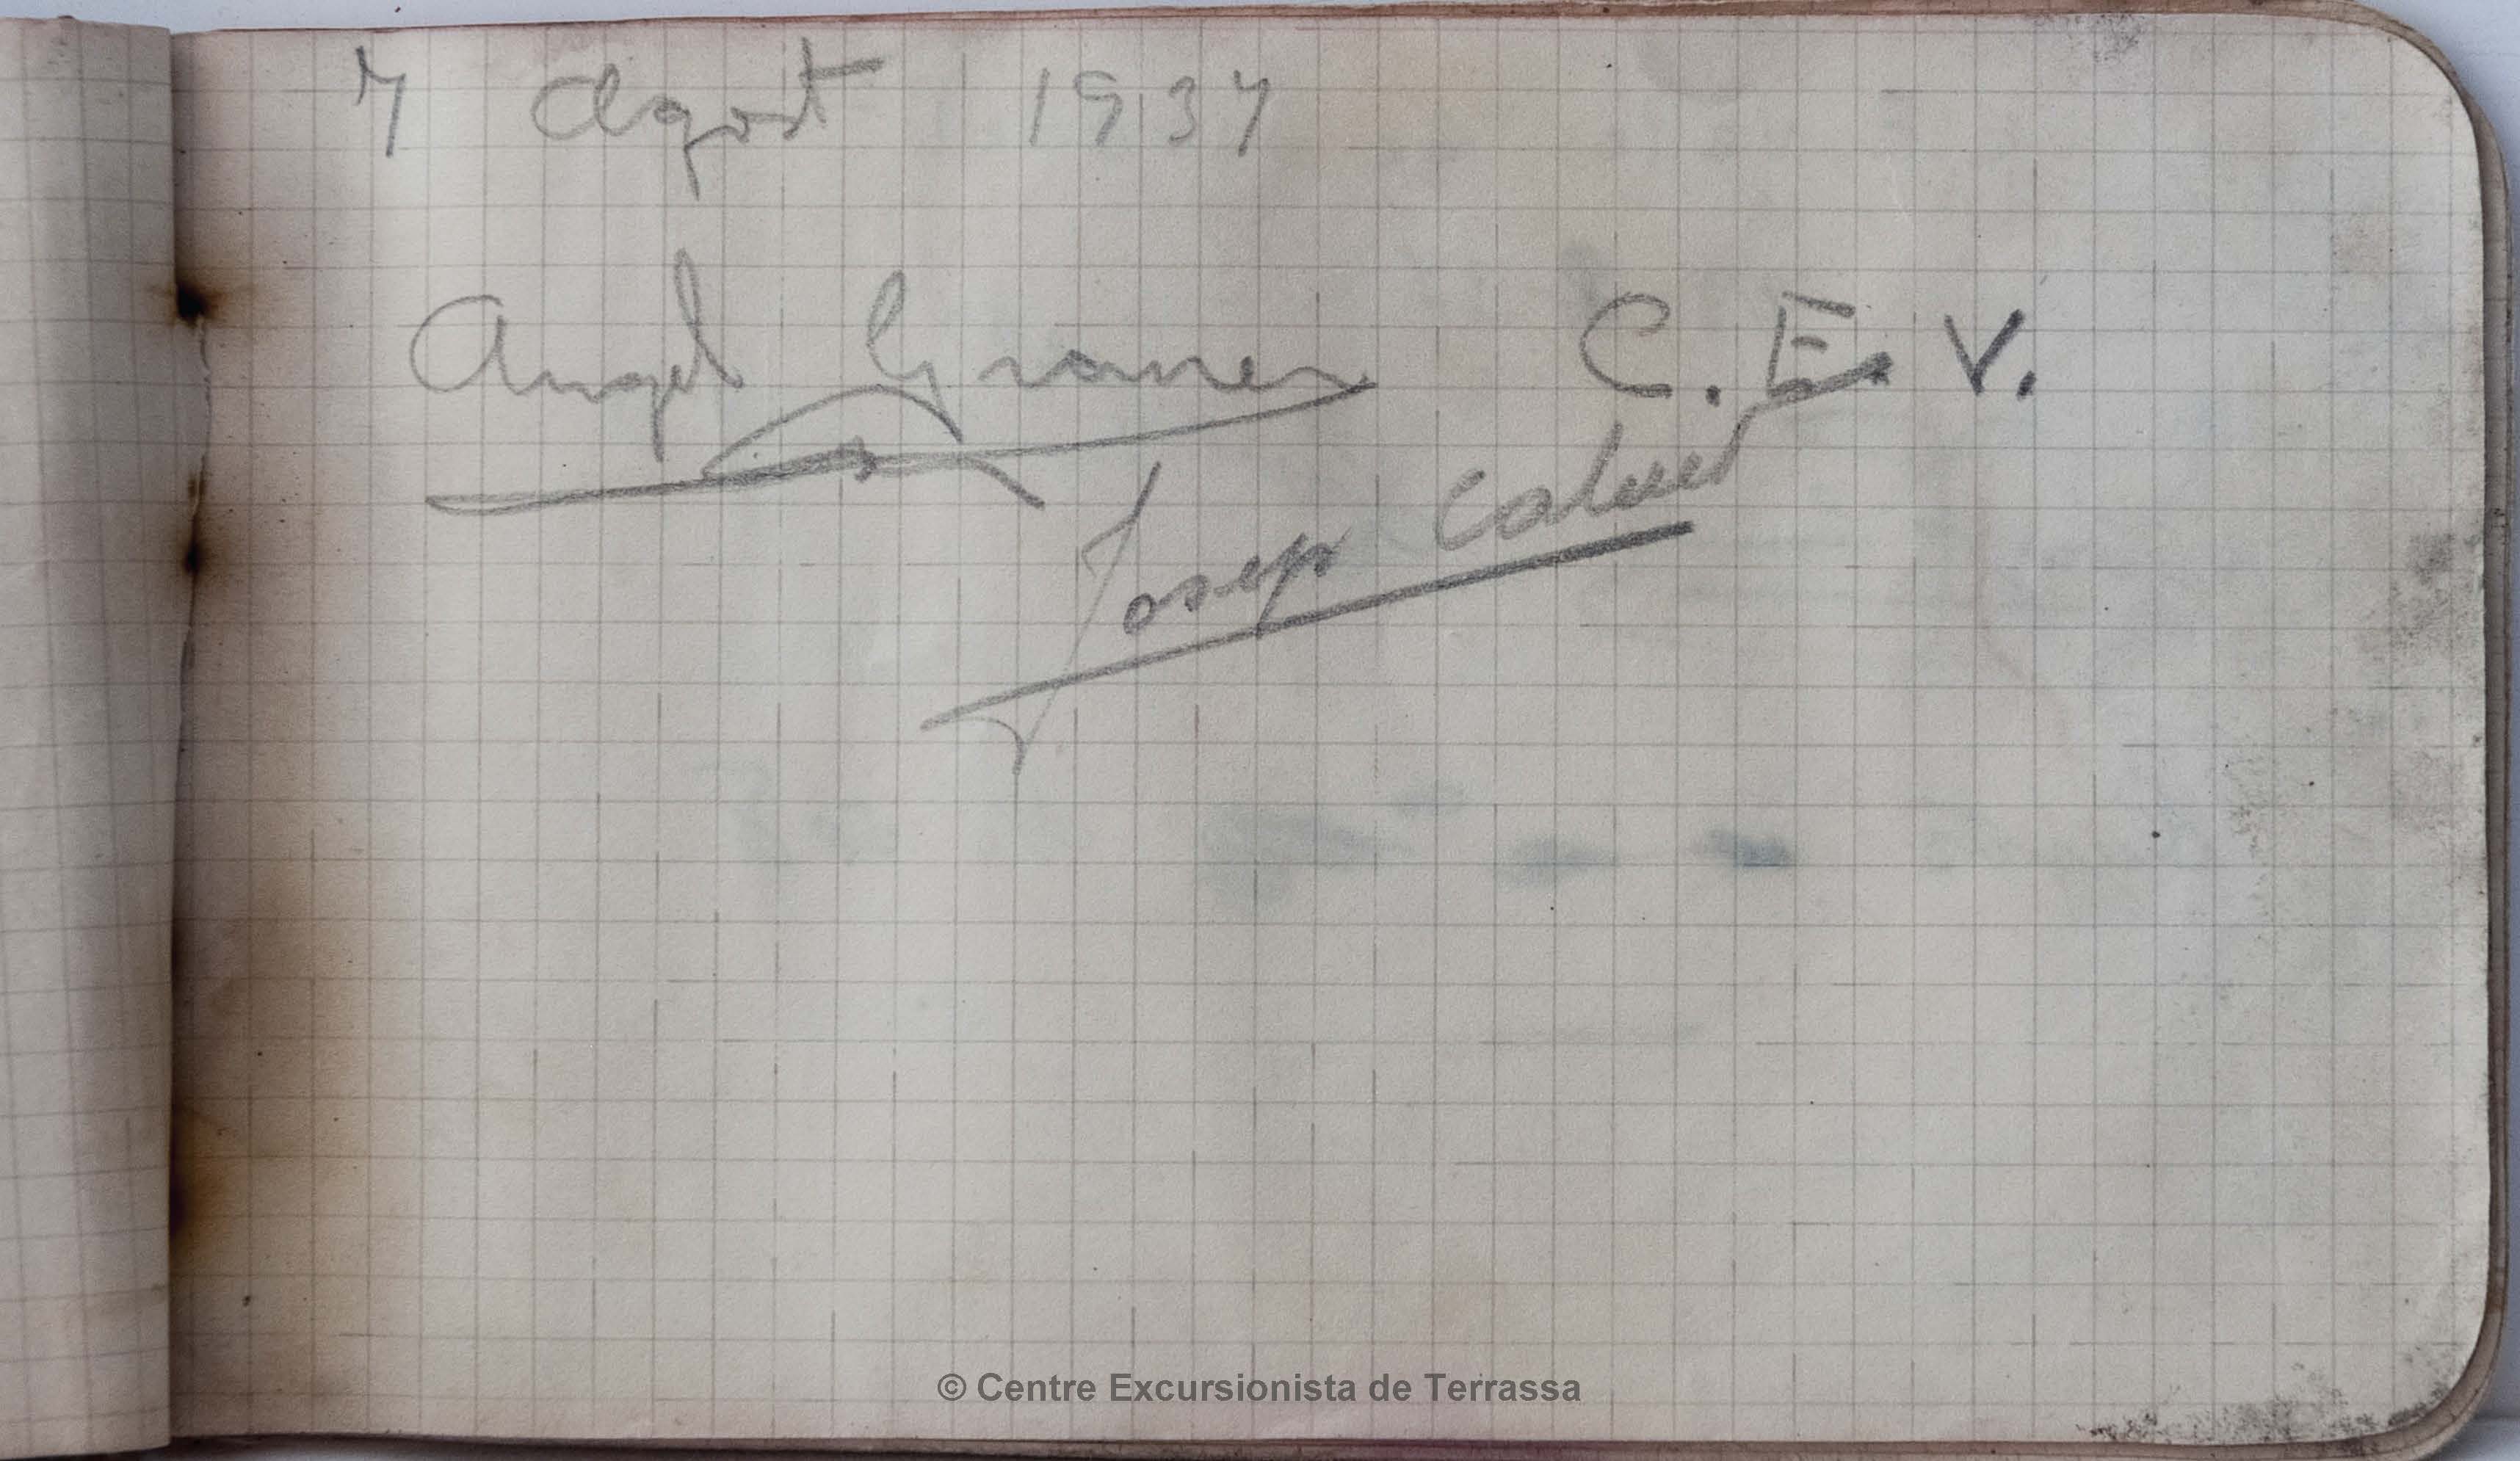 7 Agost 1937
Angel Graner C. E. V.
Josep Calvet
© Centre Excursionista de Terrassa